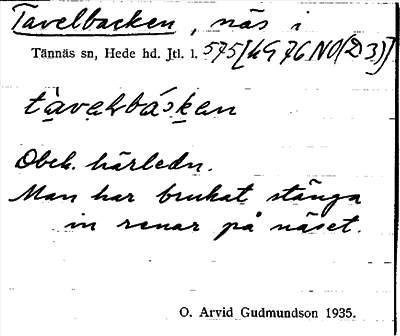 Tavelbacken, näs i
Tännäs sn, Hede hd. Jtl. l. 575[4G 76 NO(D3)]
tàvelsbáskan
Obek. härledn.
Man har brukat stänga
in renar på näset.
O. Arvid Gudmundson 1935.